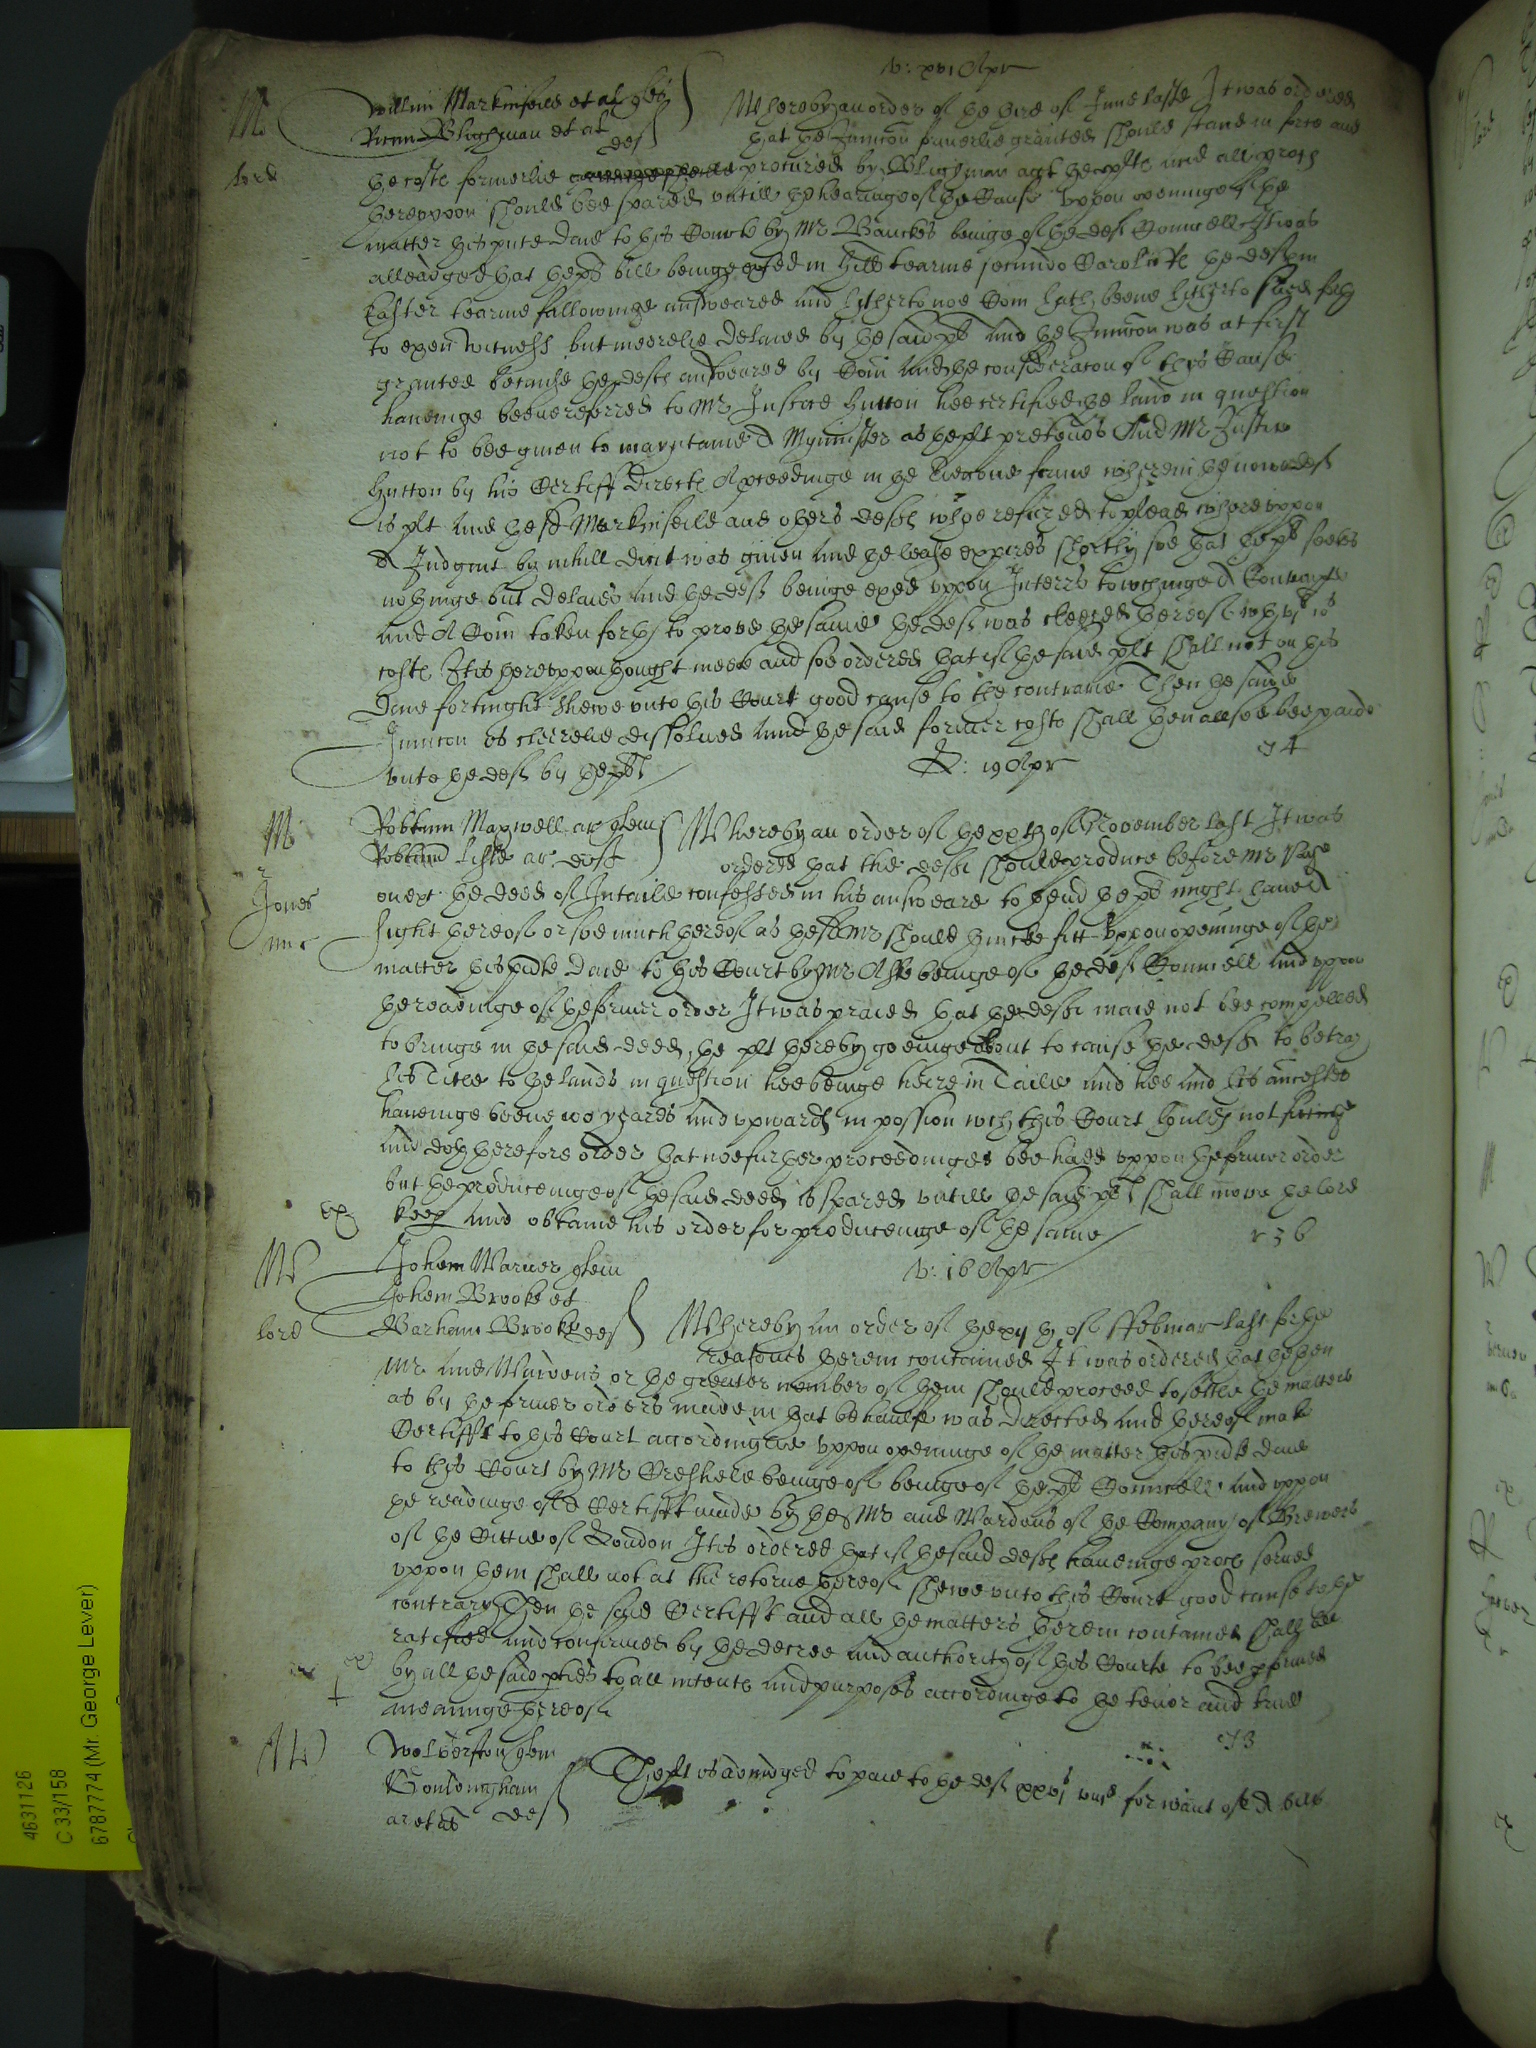 V: xvi Apr
Willm Markinfeild et al ples
Whereby an order of the third of June laste It was ordered
Ricum Blighman et al def
that the Iniunction formerlie graunted should stand in force and
lord
the costs formerlie procured by Blighman agt the plts and all proces
thereuppon should bee spared untill the hearinge of the Cause Uppon openinge of the
matter this pnte Daie to this Courte by Mr Banckes beinge of the defts Councell It was
alleadged that the plts bill beinge exhibited in Hill tearme secundo Caroli Re the deft in
Easter tearme followinge answeared and hitherto noe Com hath beene hitherto sued forth
to exen witness but meerelie delaied by the said plt And the Iniuncon was at first
graunted because the defts answeared by Com And the consideracon of this Cause
haveinge beene referred to Mr Justice Hutton hee certified the land in question
not to bee given to mayntaine A Mynister as the plt pretends And Mr Justice
Hutton by his Certiff Directs A proceedinge in the Eiectione firme wherein the nowe deft
is plt And the sd Markinfeild and others defts whoe refused to plead whereuppon
A Judgmt by nihill dicit was given And the lease expires shortly soe that the plt seekes
nothinge but delaies And the deft beinge exed uppon Interrs touchinge A Contempte
And A Com taken forth to prove the same the deft was cleered thereof wth
costs It is thereuppon thought meete and soe ordered that if the said plt shall not on this
Daie fortnight shewe unto this Court good cause to the contrarie Then the said
Iniuncon is cleerelie dissolved And the said former costs shall then allsoe bee paide
unto the deft by the plt
74
R: 19 Apr
Robtum Maxwell ar quem
Whereby an order of the xxth of November last It was
Robtum Lisle ar deft
ordered that the deft should produce before Mr Page
Jones
on ext the deed of Intaile confessed in his answeare to thend the plt might have A
sight thereof or soe much thereof as the sd Mr should thincke fitt Uppon openinge of the
matter this pnte Daie to this Court by Mr Aske beinge of the defts Councell And uppon
the readinge of the former order It was praied that the deft maie not bee compelled
to bringe in the said deed, the plt thereby goeinge about to cause the deft to betray
his Title to the lands in question hee beinge heire in Taile And hee and his ancestors
haveinge beene 100 yeares and upwards in possion wch this Court houldes not fittinge
And doth therefore order that noe further proceedinges bee had uppon the former order
but the produceinge of the said deed is spared untill the said plt shall move the lord
keep And obtaine his order for produceinge of the same
ex
136
Johem Warner quem
V: 16 Apr
Johem Brooke et
Barham Brooke def
Whereby An order of the xijth of Februar last for the
lord
reasons therein contained It was ordered that the then
Mr And Wardens or the greater nomber of them should proceed to settle the matters
as by the former orders made in that behaulfe was Directed And thereof make
Certifft to this Court accordinglie Uppon openinge of the matter this pnte daie
to this Court by Mr Cresheld beinge of beinge of the plts Councell And uppon
the readinge of A Certifft made by the Mr and Wardens of the Company of Brewers
of the Cittie of London It is ordered that if the said defts haveinge proces served
uppon them shall not at the retorne thereof shewe unto this Court good cause to the
contrary Then the said Certifft and all the matters therein contained shall bee
ratified and confirmed by the decree and authority of this Courte to bee pformed
by all the said pties to all intents And purposes accordinge to the tenor and true
meaninge thereof
ex
73
Wolverston quem
The plt is adiudged to paie to the deft xxvjs viijd for want of A bill
ar et us def
4631126
C 33/158
6787774 (Mr. George Lever)